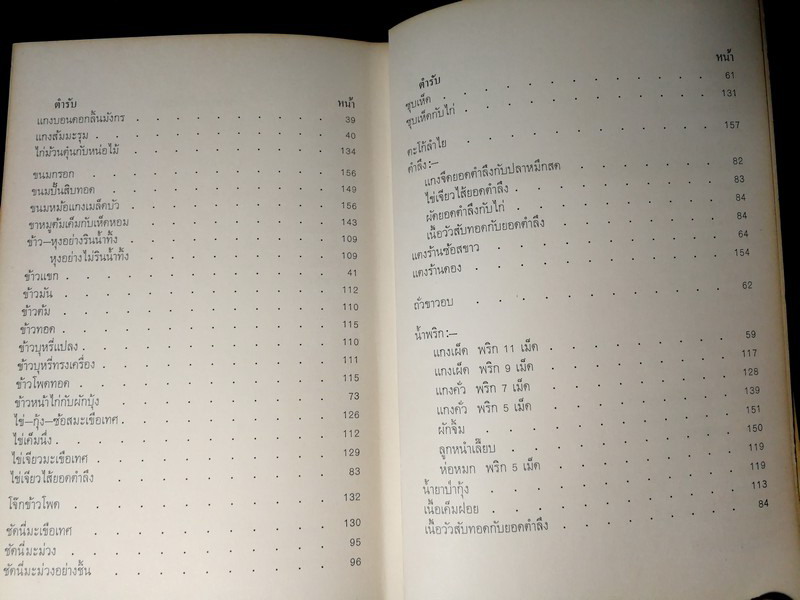 ตำรับ หน้า
แกงบอนดอกลิ้นมังกร 39
แกงส้มมะรุม 40
ไก่ม้วนตุ๋นกับหน่อไม้ 134
ขนมกรอก 156
ขนมปั้นสิบทอด 149
ขนมหม้อแกงเมล็ดบัว 156
ขาหมูต้มเค็มกับเห็ดหอม 143
ข้าว—หุงอย่างรินน้ำทิ้ง 109
หุงอย่างไม่รินน้ำทิ้ง 109
ข้าวแขก 41
ข้าวมัน 112
ข้าวต้ม 110
ข้าวทอด 115
ข้าวบุหรี่แปลง 110
ข้าวบุหรี่ทรงเครื่อง 111
ข้าวโพดทอด 115
ข้าวหน้าไก่กับผักบุ้ง 73
ไข่—กุ้ง—ซ้อสมะเขือเทศ 126
ไข่เค็มนึ่ง 112
ไข่เจียวมะเขือเทศ 129
ไข่เจียวไส้ยอดตำลึง 83
โจ๊กข้าวโพด 132
ชัดนี่มะเขือเทศ 130
ชัดนี่มะม่วง 95
ชัดนี่มะม่วงอย่างชิ้น 96
ตำรับ หน้า
ซุบเห็ด 61
ซุบเห็ดกับไก่ 131
ตะโก้ลำไย 157
ตำลึง:—
แกงจืดยอดตำลึงกับปลาหมึกสด 82
ไข่เจียวไส้ยอดตำลึง 83
ผัดยอดตำลึงกับไก่ 84
เนื้อวัวสับทอดกับยอดตำลึง 84
แตงร้านซ้อสขาว 64
แตงร้านดอง 154
ถั่วขาวอบ 62
น้ำพริก:—
แกงเผ็ด พริก 11 เม็ด 59
แกงเผ็ด พริก 9 เม็ด 117
แกงคั่ว พริก 7 เม็ด 128
แกงคั่ว พริก 5 เม็ด 139
ผักจิ้ม 151
ลูกหนำเลี๊ยบ 150
ห่อหมก พริก 5 เม็ด 119
น้ำยาป่ากุ้ง 119
เนื้อเค็มฝอย 113
เนื้อวัวสับทอดกับยอดตำลึง 84